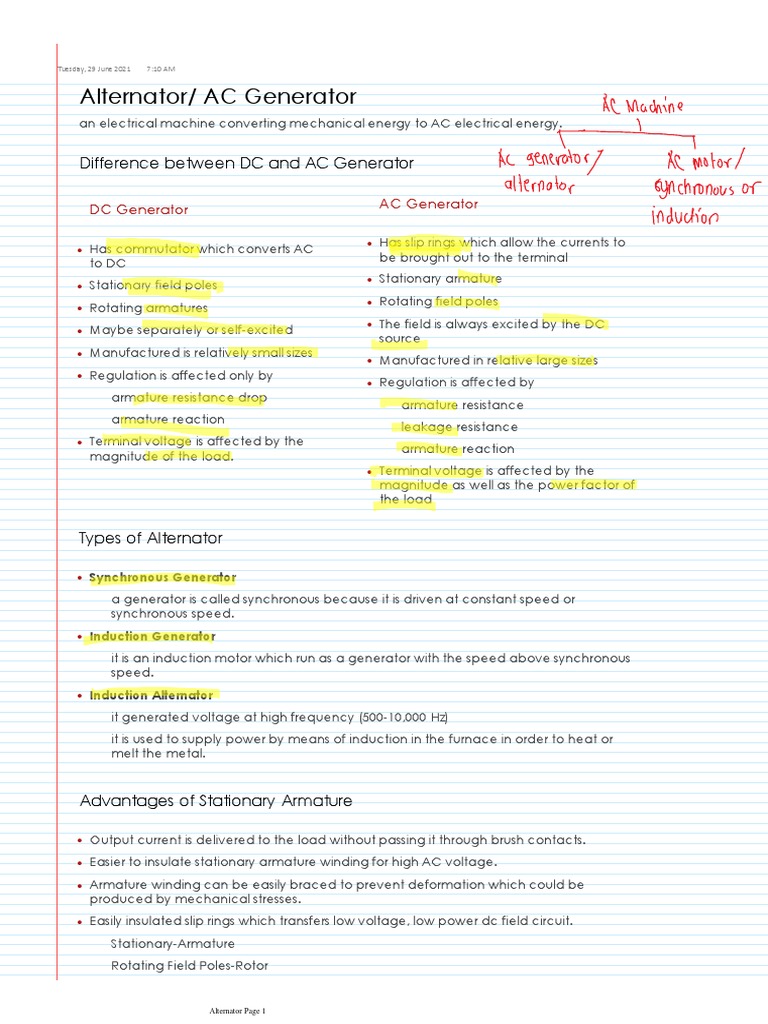 Tuesday, 29 June 2021 7:10 AM
Alternator/ AC Generator
an electrical machine converting mechanical energy to AC electrical energy.
AC Machine
AC generator/
alternator
AC motor/
synchronous or
induction
Difference between DC and AC Generator
DC Generator
• Has commutator which converts AC
to DC
• Stationary field poles
• Rotating armatures
• Maybe separately or self-excited
• Manufactured is relatively small sizes
• Regulation is affected only by
armature resistance drop
armature reaction
• Terminal voltage is affected by the
magnitude of the load.
AC Generator
• Has slip rings which allow the currents to
be brought out to the terminal
• Stationary armature
• Rotating field poles
• The field is always excited by the DC
source
• Manufactured in relative large sizes
• Regulation is affected by
armature resistance
leakage resistance
armature reaction
• Terminal voltage is affected by the
magnitude as well as the power factor of
the load
Types of Alternator
• Synchronous Generator
a generator is called synchronous because it is driven at constant speed or
synchronous speed.
• Induction Generator
it is an induction motor which run as a generator with the speed above synchronous
speed.
• Induction Alternator
it generated voltage at high frequency (500-10,000 Hz)
it is used to supply power by means of induction in the furnace in order to heat or
melt the metal.
Advantages of Stationary Armature
• Output current is delivered to the load without passing it through brush contacts.
• Easier to insulate stationary armature winding for high AC voltage.
• Armature winding can be easily braced to prevent deformation which could be
produced by mechanical stresses.
• Easily insulated slip rings which transfers low voltage, low power dc field circuit.
Stationary-Armature
Rotating Field Poles-Rotor
Alternator Page 1